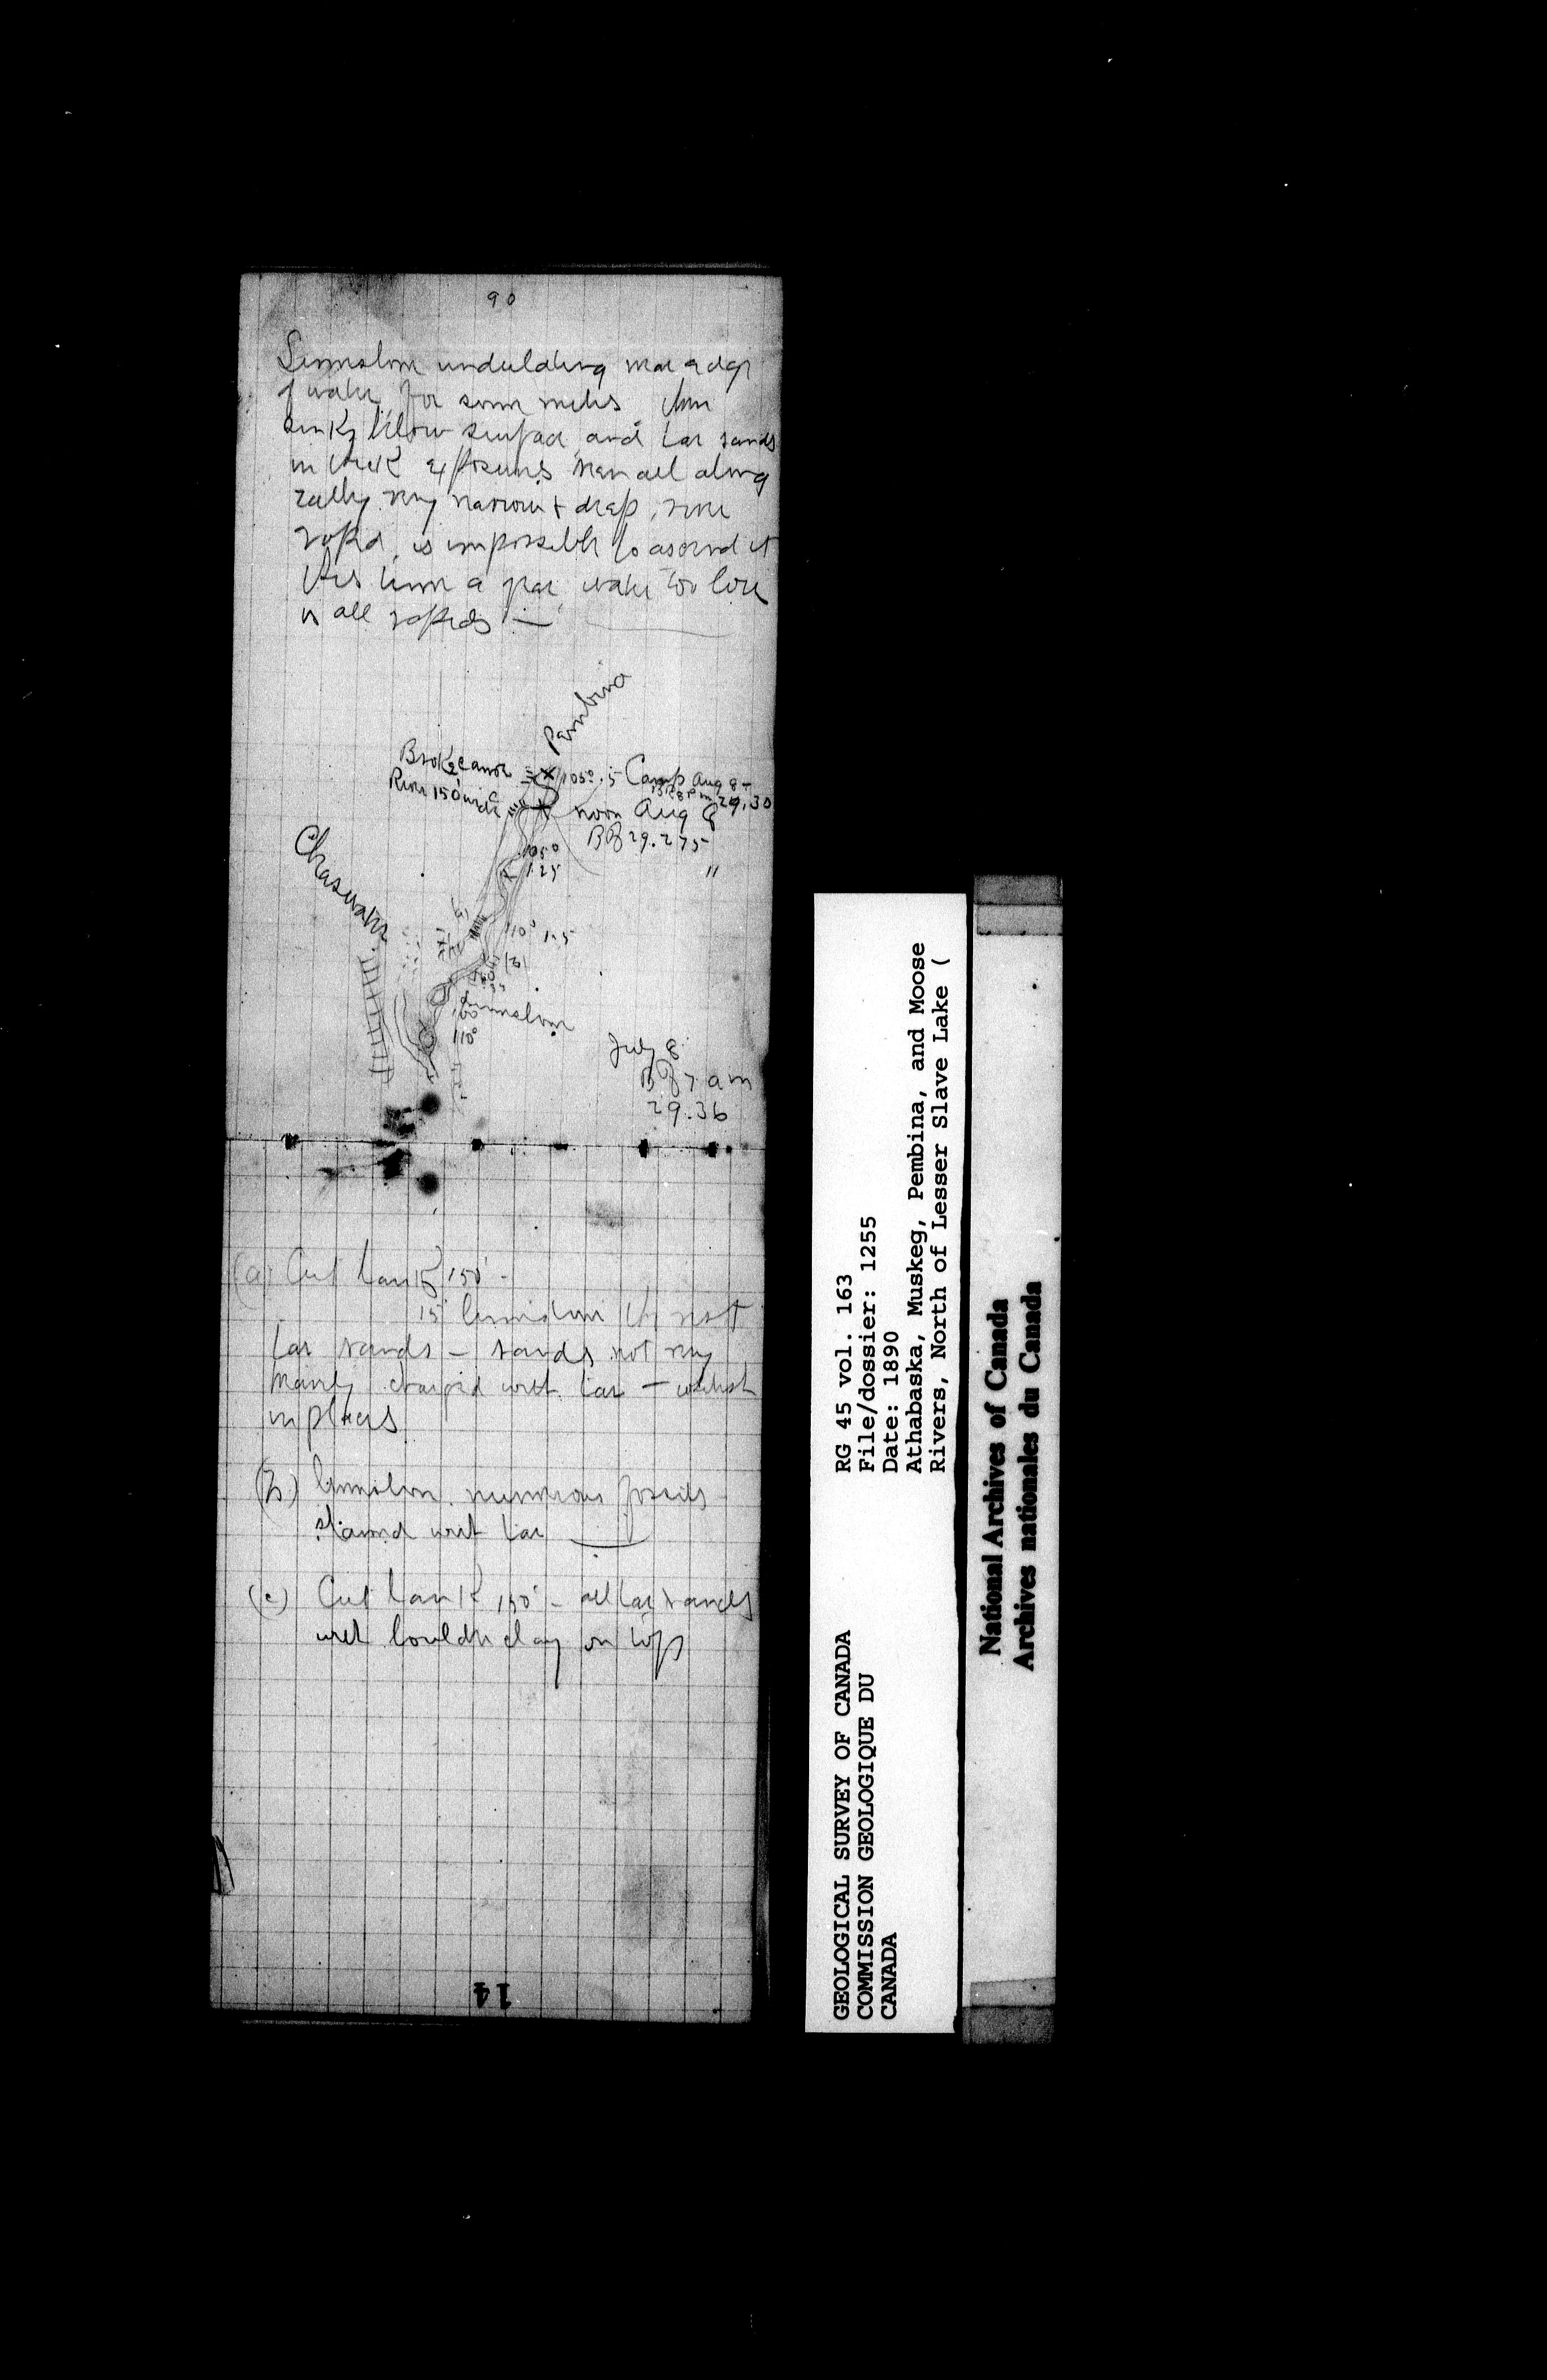 90
Limestone undulating near edge
of water for some miles then
sinks below surface and tar sands
in thick exposures seen all along
valley very narrow + deep, river
rapid, is impossible to ascend it
this time a year water too low
is all rapids —
Pembina
Broke canoe
River 150' wide
105° .5 Camp Aug 8 -
8 pm 29.30
noon Aug 8
29.275
105°
1.25
110° 1.5
(b)
Limestone
60°
110°
July 8
7 am
29.36
(a) Cut bank 150' -
15' limestone the rest
tar sands – sands not very
heavily charged with tar –
in places
(b) limestone numerous fossils
stained with tar
(c) Cut bank 150' - all tar sands
with boulder clay on top
14
GEOLOGICAL SURVEY OF CANADA
COMMISSION GEOLOGIQUE DU
CANADA
RG 45 vol. 163
File/dossier: 1255
Date: 1890
Athabaska, Muskeg, Pembina, and Moose
Rivers, North of Lesser Slave Lake (
National Archives of Canada
Archives nationales du Canada